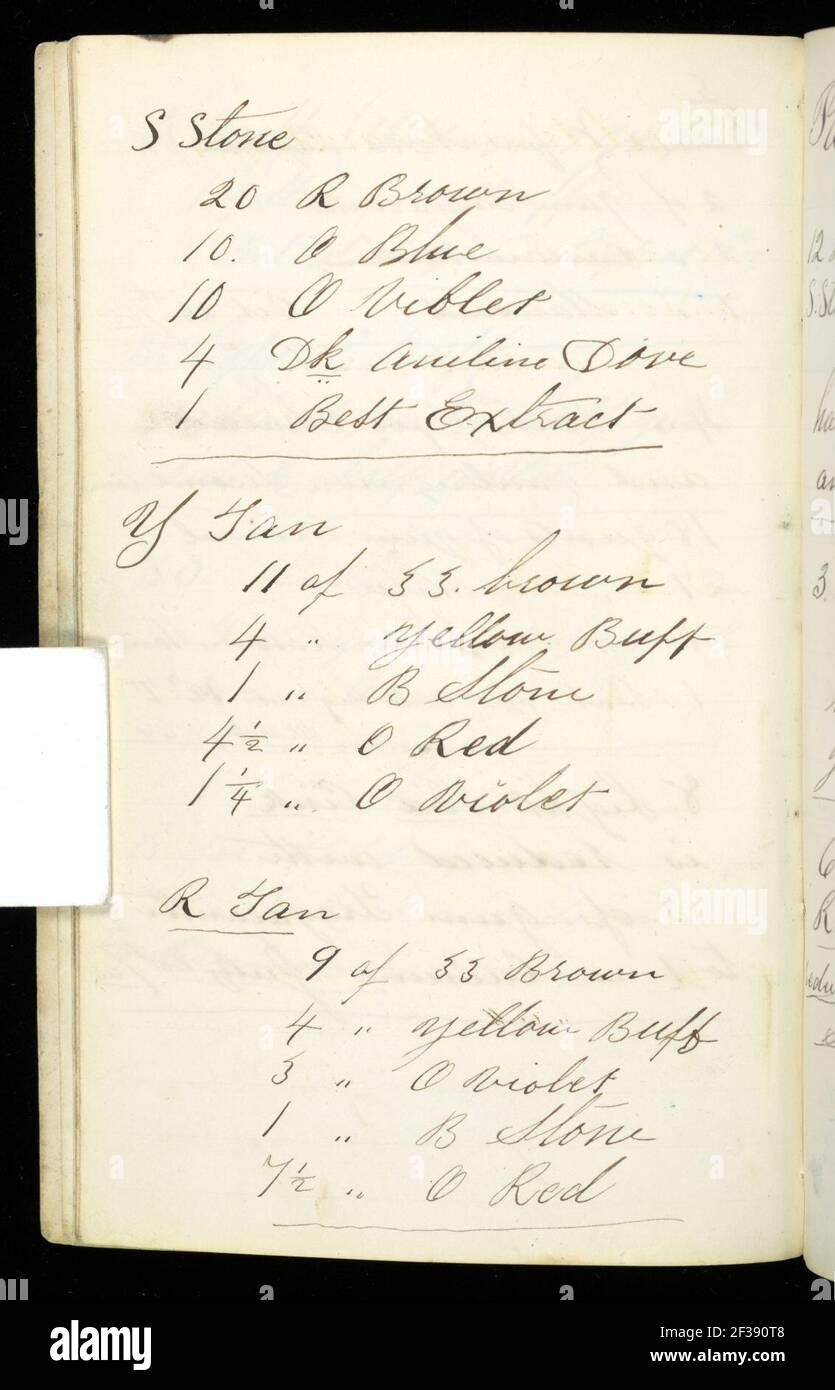 S Stone
20 R Brown
10. O Blue
10 O Violet
4 Dk aniline Dove
1 Best Extract
Y Tan
11 of 33. brown
4 " Yellow Buff
1 " B Stone
4 1/2 " O Red
1 1/4 " O Violet
R Tan
9 of 33 Brown
4 " Yellow Buff
3 " O Violet
1 " B Stone
7 1/2 " O Red
12
3.
alamy
Image ID: 2F390T8
www.alamy.com